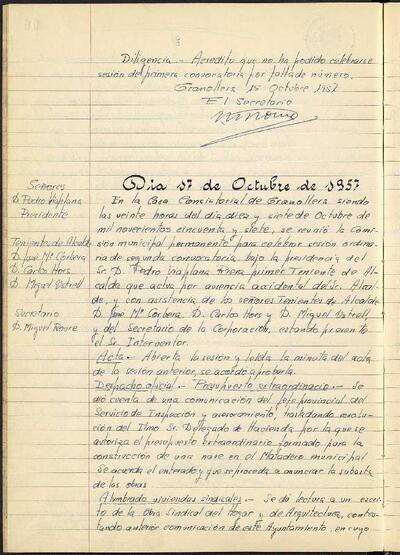 Diligencia.- Acredito que no ha podido celebrarse
sesión del primera convocatoria por falta de número.
Granollers 15 Octubre 1957
El Secretario
Dia 17 de Octubre de 1957
Señores
D. Pedro Viaplana
Presidente
Tenientes de Alcalde
D. José Mª Corbera
D. Carlos Hors
D. Miguel Ystrell
Secretario
D. Miguel Roure
En la Casa Consistorial de Granollers siendo
las veinte horas del día diez y siete de Octubre de
mil novecientos cincuenta y siete, se reunió la Comi-
sión municipal permanente para celebrar sesión ordina-
ria de segunda convocatoria, bajo la presidencia del
Sr. D. Pedro Viaplana Riera primer Teniente de Al-
calde que actua por ausencia accidental del Sr. Alcal-
de, y con asistencia de los señores Tenientes de Alcalde
D. José Mª Corbera, D. Carlos Hors y D. Miguel Ystrell,
y del Secretario de la Corporación, estando presente
el Sr. Interventor.
Acta.- Abierta la sesión y leída la minuta del acta
de la sesión anterior, se acordó aprobarla.
Despacho oficial.- Presupuesto extraordinario.- Se dió
cuenta de una comunicación del Jefe provincial del
Servicio de Inspección y asesoramiento, trasladando resolu-
ción del Ilmo Sr. Delegado de Hacienda por la que se
autoriza el presupuesto extraordinario formado para la
construcción de una nave en el Matadero municipal
Se acuerda el enterado y que se proceda a anunciar la subasta
de las obras
Alumbrado viviendas sindicales.- Se da lectura a un escri-
to de la Obra Sindical del Hogar y de Arquitectura, contes-
tando anterior comunicación de este Ayuntamiento, en cuyo